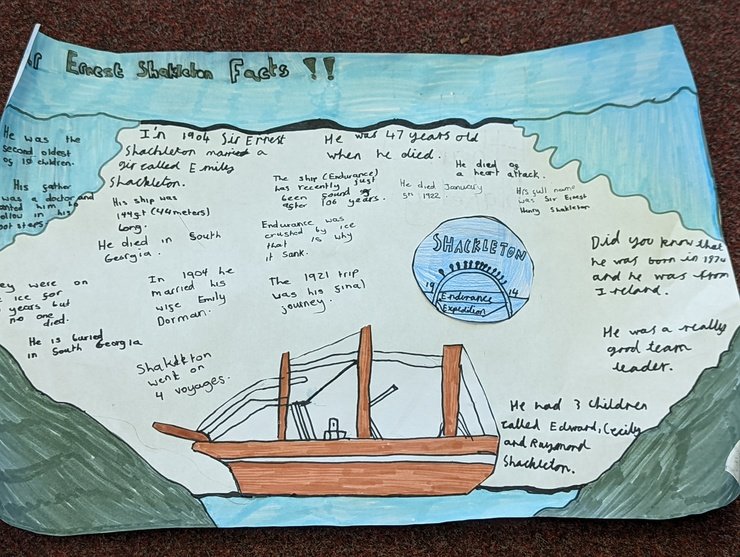 Ernest Shakleton Facts !!
He was the
second oldest
of 10 children.
His father
was a doctor and
wanted him to
follow in his
foot steps
I'n 1904 Sir Ernest
Shackleton married a
gir called Emily
Shackleton.
He was 47 years old
when he died.
He died of
a heart attack.
The ship (Endurance)
has recently just
been found
after 106 years.
He died January
5th 1922.
His full name
was Sir Ernest
Henry Shakleton
His ship was
144ft (44meters)
long.
He died in South
Georgia.
Endurance was
crushed by ice
that is why
it sank.
SHACKLETON
19 14
Endurance
Expedition
Did you know that
he was born in 1874
and he was from
Ireland.
They were on
ice for
years but
no one
died.
In 1904 he
married his
wife Emily
Dorman.
The 1921 trip
was his final
journey.
He is buried
in South Georgia
He was a really
good team
leader.
Shakleton
went on
4 voyages.
He had 3 children
called Edward, Cecily
and Raymond
Shackleton.